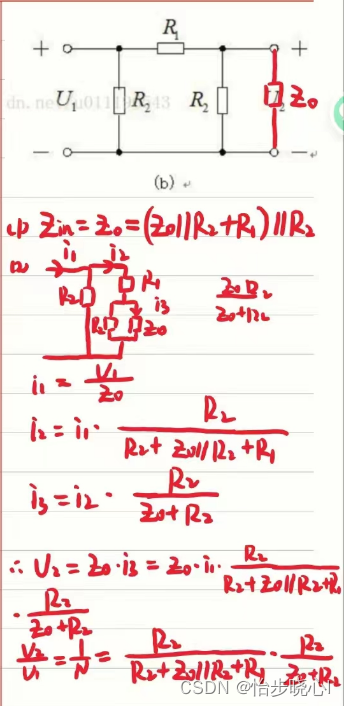 R₁
+ +
dn.net/u011
43
U₁ R₂ R₂ Z₀
— —
(b)
(1) Zin = Z₀ = (Z₀//R₂+R₁)//R₂
(2) i₁ i₂
R₂ R₁ i₃
R₂ Z₀
Z₀R₂/(Z₀+R₂)
i₁ = U₁/Z₀
i₂ = i₁ · R₂/(R₂+Z₀//R₂+R₁)
i₃ = i₂ · R₂/(Z₀+R₂)
∴ U₂ = Z₀·i₃ = Z₀·i₁· R₂/(R₂+Z₀//R₂+R₁)
· R₂/(Z₀+R₂)
U₂/U₁ = 1/N = R₂/(R₂+Z₀//R₂+R₁) · R₂/(Z₀+R₂)
CSDN @怡步晓心l